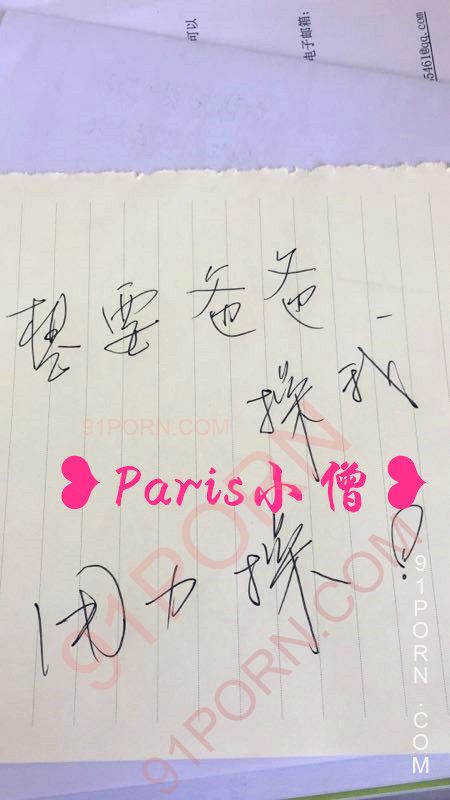 可以
电子邮箱:
5461@qq.com
想要爸爸
操我
91PORN.COM
Paris小僧
用力操!
91PORN
91PORN.COM
91PORN.COM